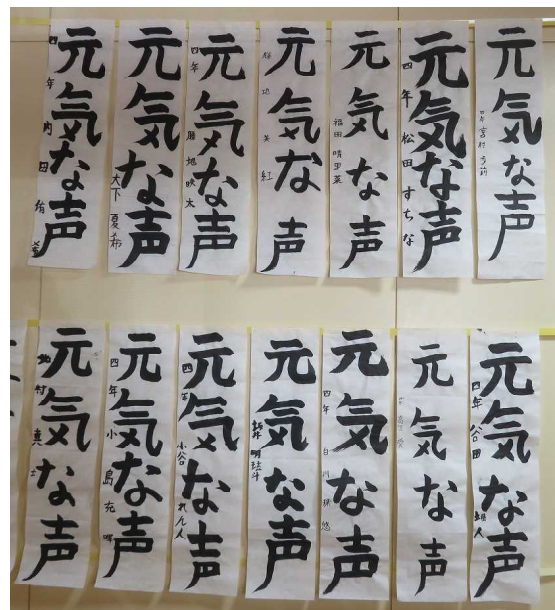 元気な声
四年
元気な声
大下 夏希
元気な声
四年 勝地 映太
元気な声
元気な声
福田
元気な声
四年 松田 すぢな
元気な声
元気な声
元気な声
四年 小島 充
元気な声
四年 小谷 れん人
元気な声
元気な声
四年 白川
元気な声
元気な声
四年 谷田